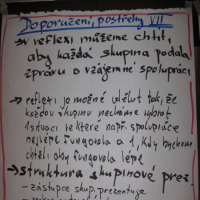 Doporučení, postřehy VII
→ v reflexi můžeme chtít,
aby každá skupina podala
zprávu o vzájemné spolupráci
→ reflexi je možné udělat tak, že
každou skupinu necháme vybrat
1 situaci ve které např. spolupráce
nejlépe fungovala a 1, kdy bychom
chtěli aby fungovala lépe
→ struktura skupinové prez.
- zástupce skup. prezentuje